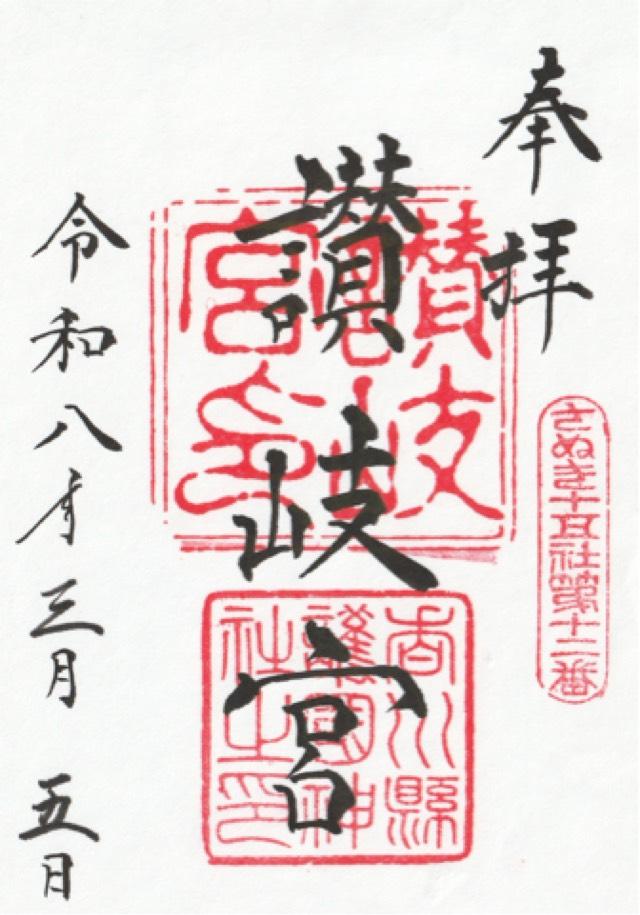 奉拝
さぬき十五社第十二番
讃岐宮
讃岐宮印
香川縣護國神社之印
令和八年三月五日